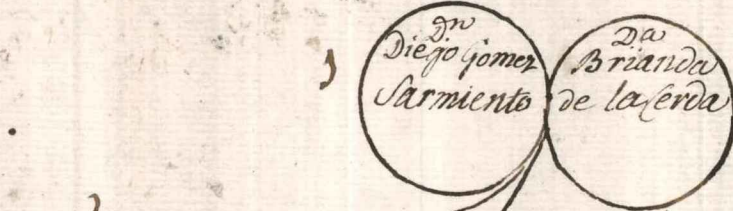 Dn
Diego Gomez
Sarmiento
Da
Brianda
de la Cerda